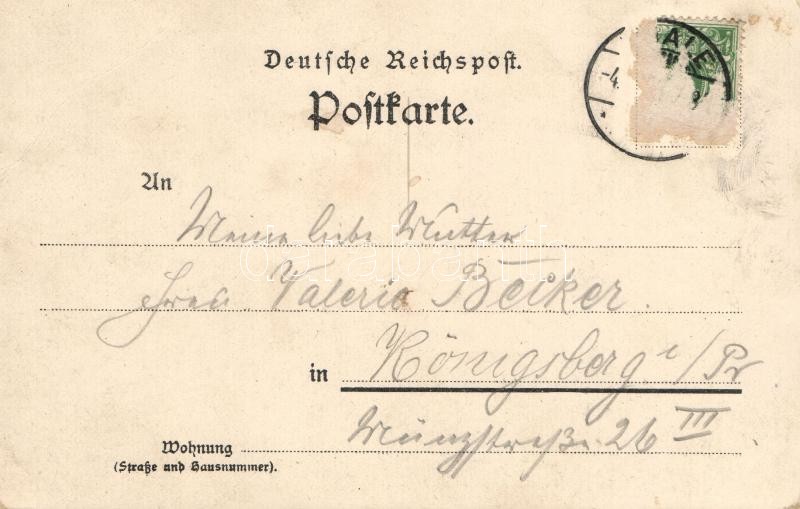 Deutsche Reichspost.
Postkarte.
An
Meine liebe Mutter
Frau Valerie Becker.
in Königsberg i/Pr
Münzstraße 26 III
Wohnung
(Straße und Hausnummer).
darabanth